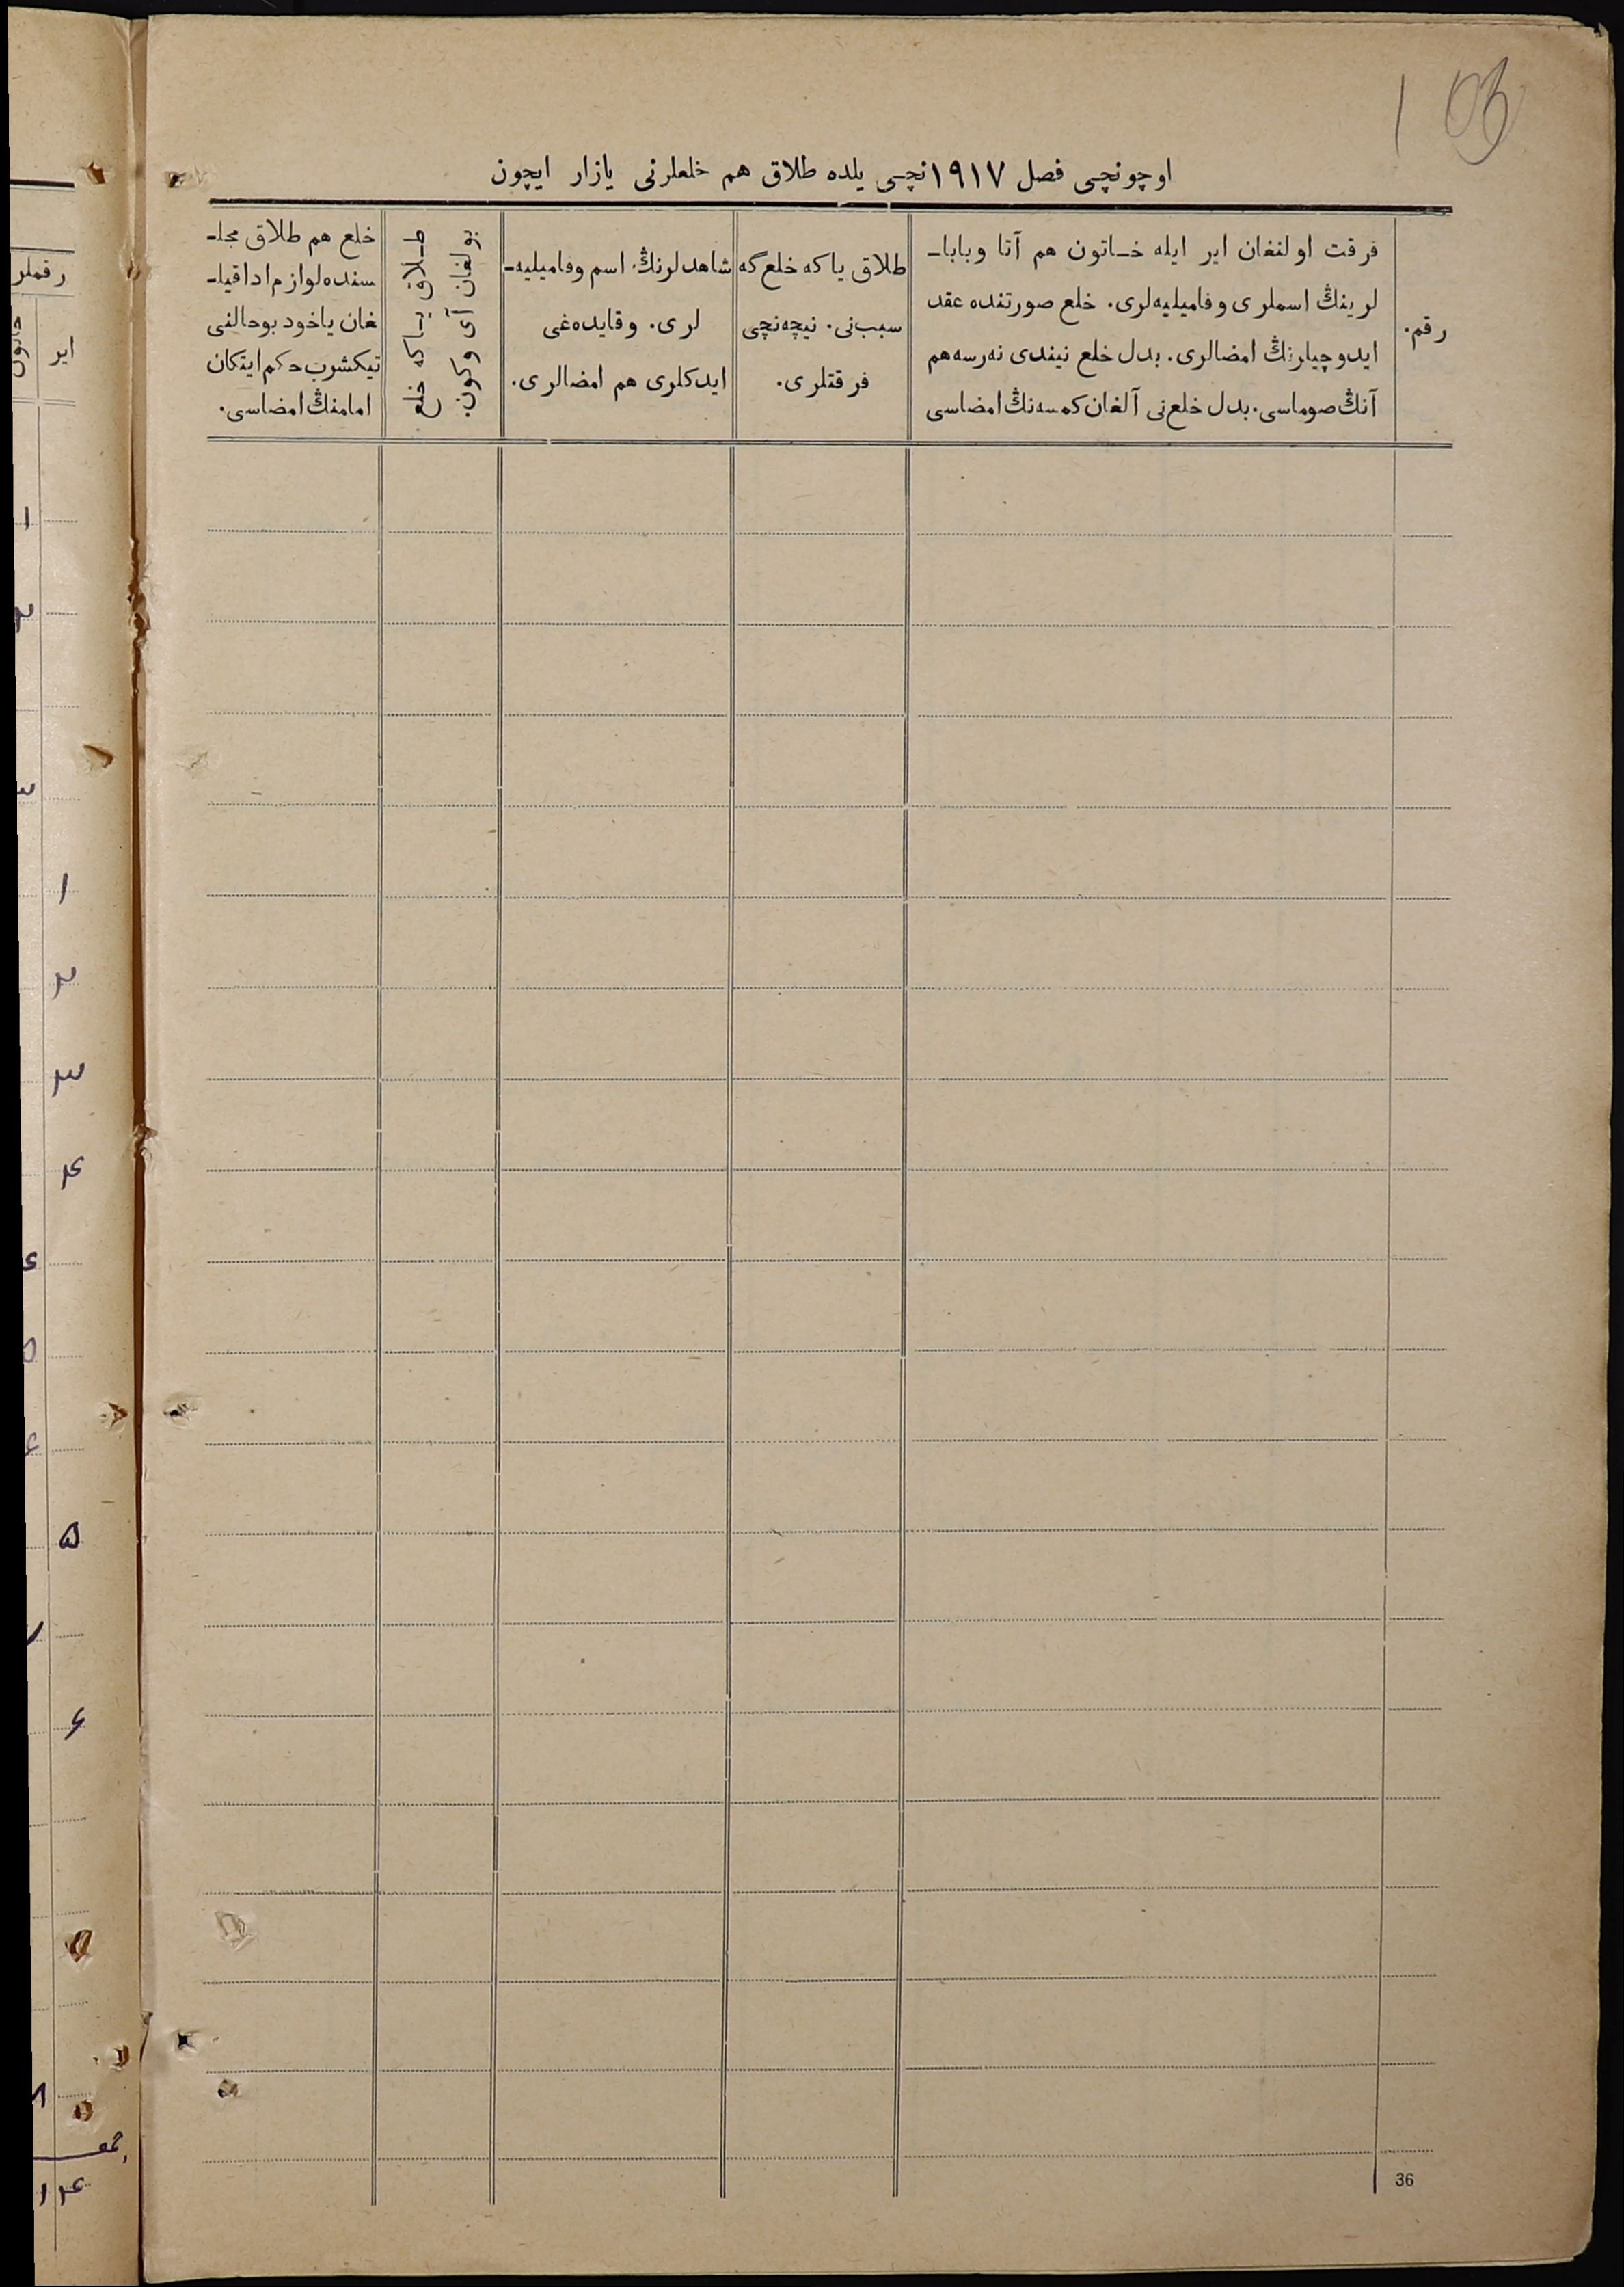 103
اوچونچی فصل ١٩١٧نچی یلده طلاق هم خلعلرنی یازار ایچون
رقم.
فرقت اولنغان ایر ایله خاتون هم آتا وبابا-
لرینڭ اسملری وفامیلیه‌لری. خلع صورتنده عقد
ایدوچیلرنڭ امضالری. بدل خلع نیندی نه‌رسه هم
آنڭ صوماسی. بدل خلع‌نی آلغان کمسه‌نڭ امضاسی
طلاق یاکه خلع‌گه
سبب‌نی. نیچه‌نچی
فرقتلری.
شاهدلرنڭ اسم وفامیلیه-
لری. وقایده‌غی
ایدکلری هم امضالری.
طلاق یاکه خلع
بولغان آی وکون.
خلع هم طلاق مجلـ-
سنده لوازم ادا قیلـ-
غان یاخود بوحالنی
تیکشرب حکم ایتکان
امامنڭ امضاسی.
رقملر
ایر
خاتون
١
٢
٣
١
٢
٣
٤
٤
٥
٦
٥
٧
٦
٨
١٤
36